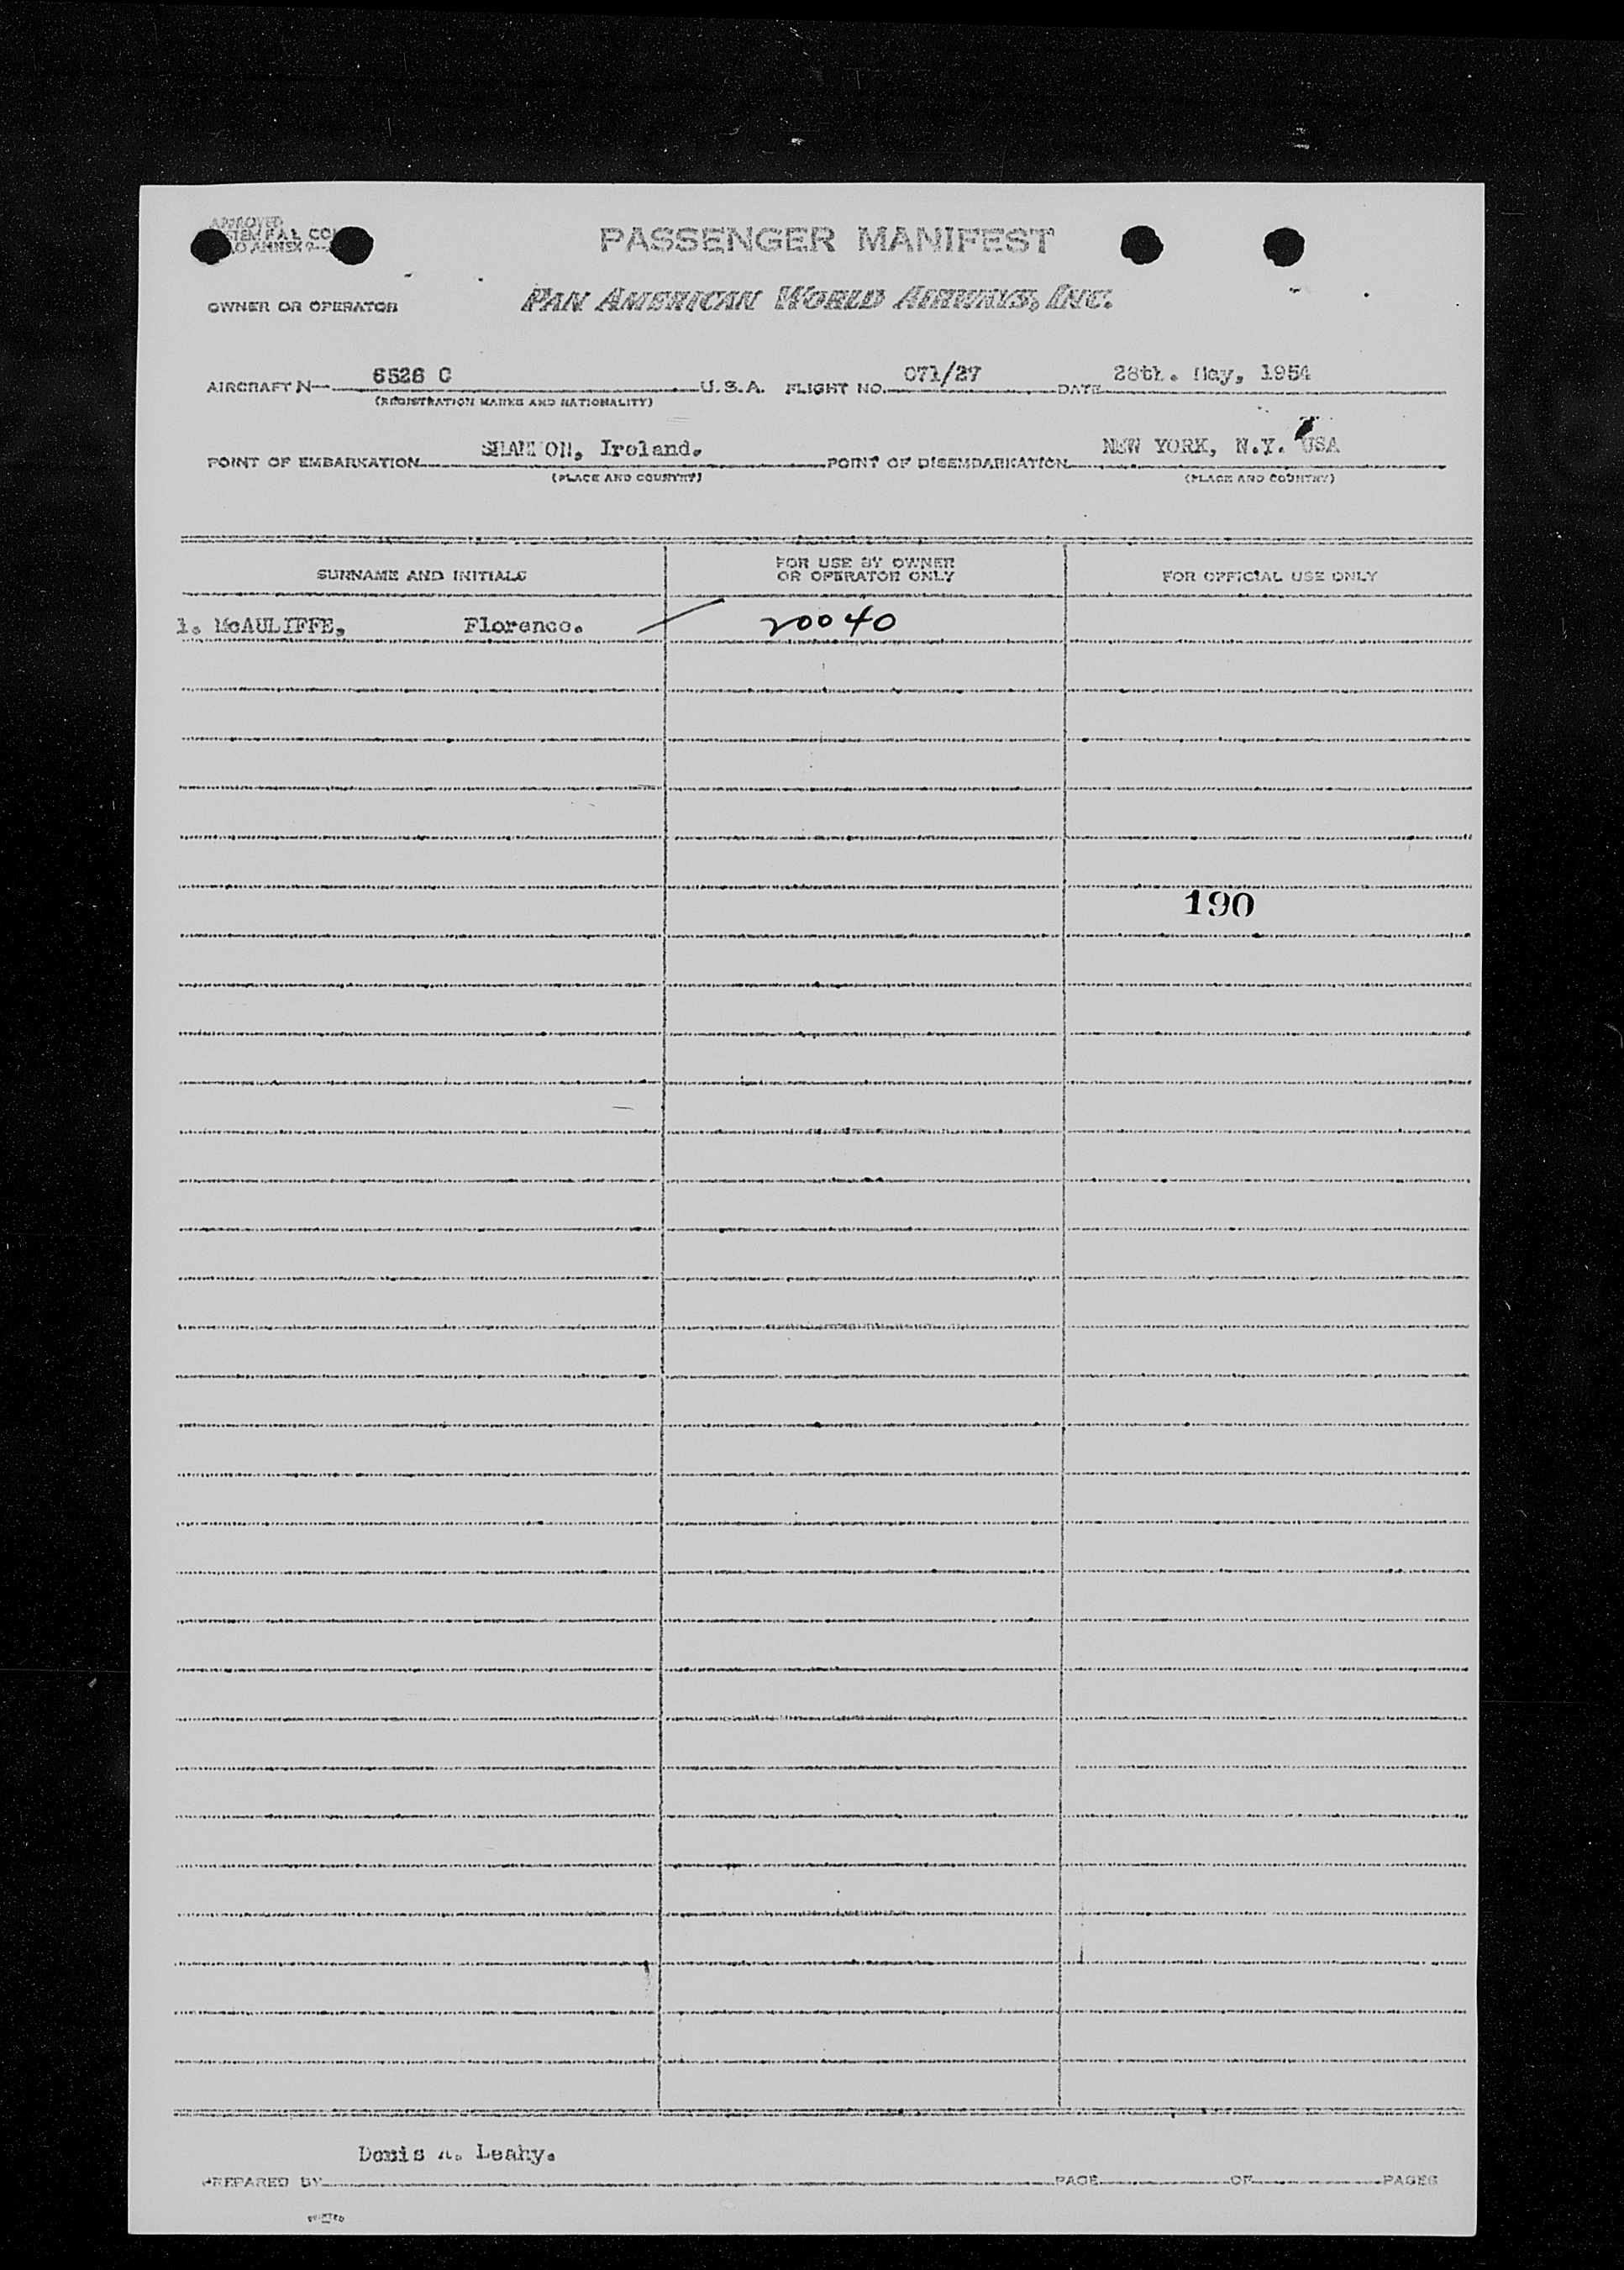 APPROVED
PASSENGER MANIFEST
OWNER OR OPERATOR PAN AMERICAN WORLD AIRWAYS, INC.
AIRCRAFT N- 6526 C U.S.A. FLIGHT NO. 071/27 DATE 28th. May, 1954
(REGISTRATION MARKS AND NATIONALITY)
POINT OF EMBARKATION SHANNON, Ireland. POINT OF DISEMBARKATION NEW YORK, N.Y. USA
(PLACE AND COUNTRY) (PLACE AND COUNTRY)
SURNAME AND INITIALS FOR USE BY OWNER OR OPERATOR ONLY FOR OFFICIAL USE ONLY
1. McAULIFFE, Florence. 20040
190
Denis A. Leahy.
PREPARED BY PAGE OF PAGES
PRINTED